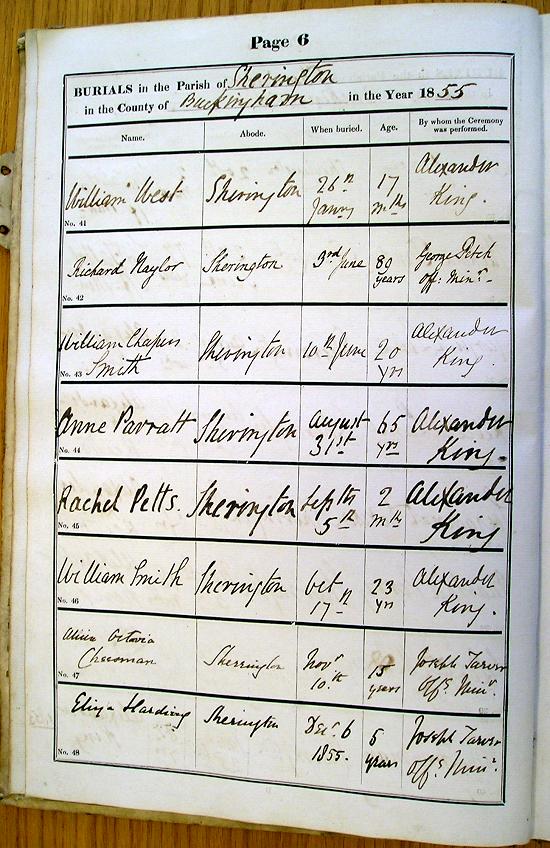 Page 6
BURIALS in the Parish of Sherington
in the County of Buckingham in the Year 1855
Name. Abode. When buried. Age. By whom the Ceremony was performed.
William West Sherington 26th Janny 17 mths Alexander King.
No. 41
Richard Naylor Sherington 3rd June 80 years George Petch Off: Minr.
No. 42
William Smith Sherington 10th June 20 yrs Alexander King.
No. 43
Anne Parratt Sherington August 31st 65 yrs Alexander King.
No. 44
Rachel Petts. Sherington Septr 5th 2 mths Alexander King
No. 45
William Smith Sherington Oct 17th 23 yrs Alexander King.
No. 46
Octavia Cheesman Sherrington Novr 10th 15 years Joseph Offg Minr.
No. 47
Eliza Harding Sherington Decr. 6 1855. 5 years Joseph Offg Minr.
No. 48